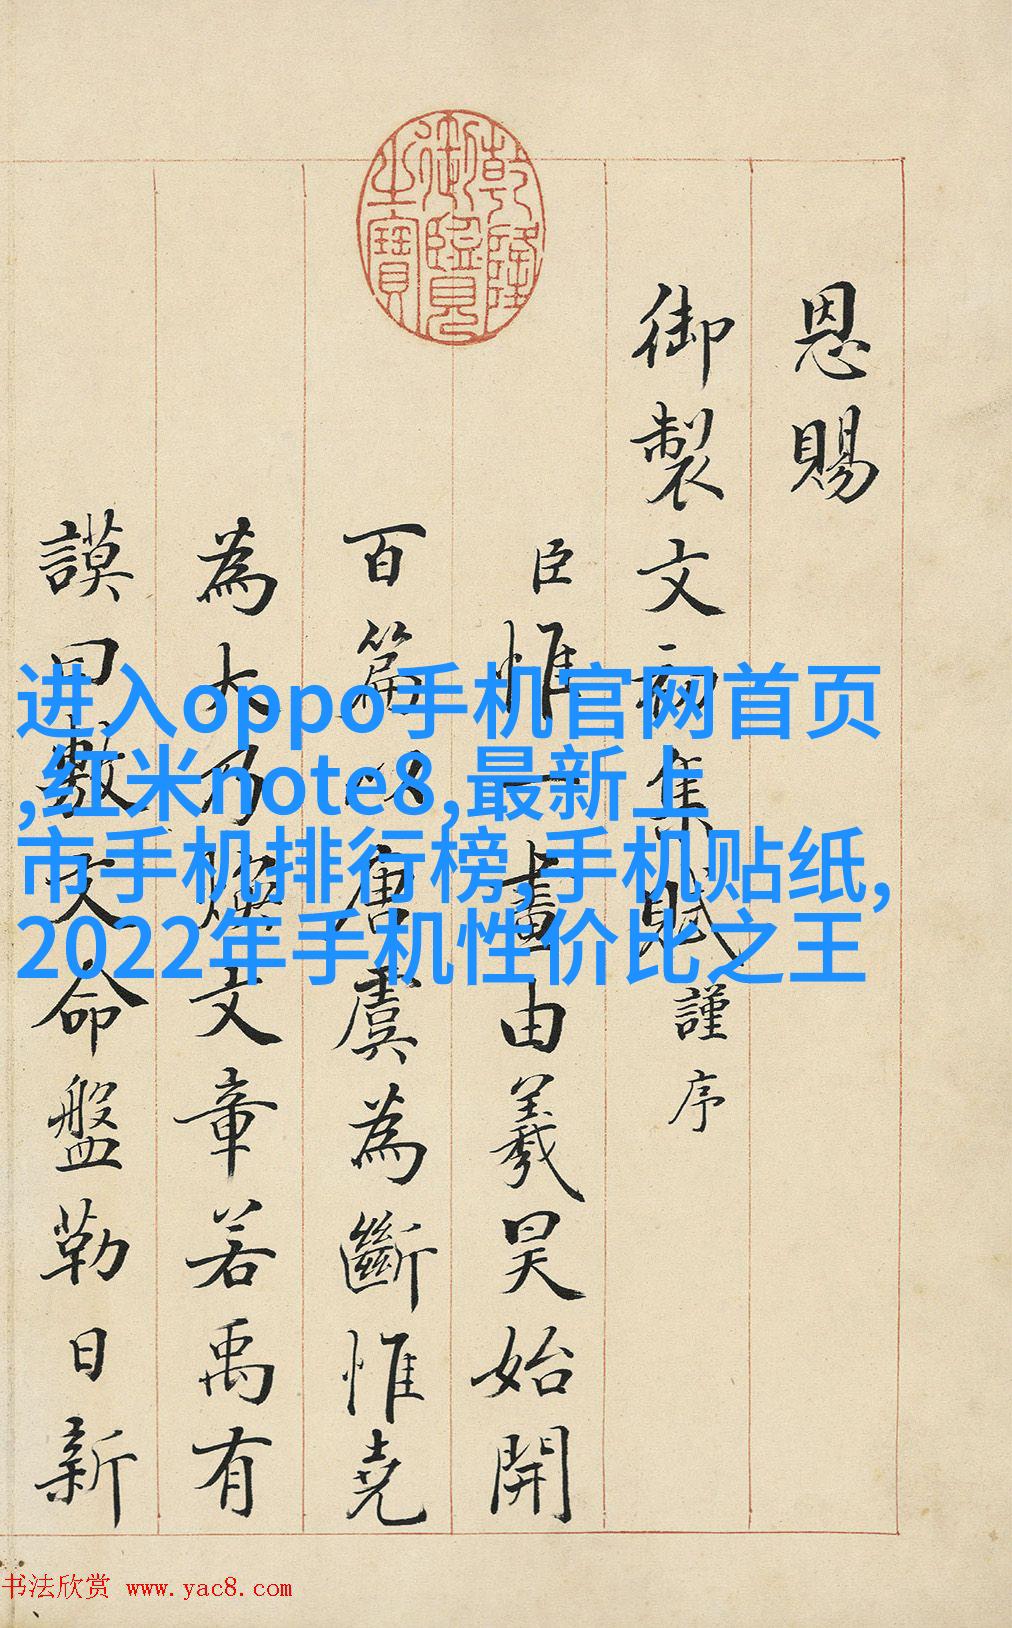 乾隆
御覽
之寶
恩賜
御製文初集賦謹序
臣惟一畫由羲昊始開
百篇以唐虞為斷惟堯
為大乃煥文章若禹有
謨曰敷文命盤勒日新
进入oppo手机官网首页
,红米note8,最新上
市手机排行榜,手机贴纸,
2022年手机性价比之王
书法欣赏 www.yac8.com